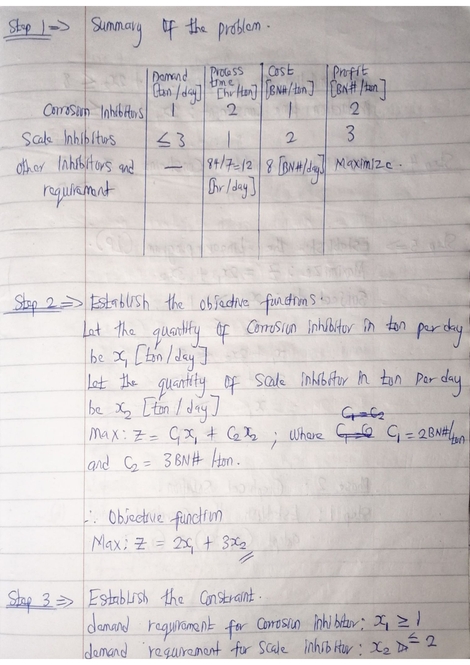 Step 1 => Summary of the problem.
Demand [ton/day] Process time [hr/ton] Cost [BN#/ton] Profit [BN#/ton]
Corrosion Inhibitors 1 2 1 2
Scale Inhibitors ≤ 3 1 2 3
other Inhibitors and requirement — 84/7=12 [hr/day] 8 [BN#/day] Maximize.
Step 2 => Establish the objective functions:
Let the quantity of Corrosion inhibitor in ton per day
be x₁ [ton/day]
Let the quantity of scale inhibitor in ton per day
be x₂ [ton/day]
Max: Z = C₁x₁ + C₂x₂ ; where C₁ = 2BN#/ton
and C₂ = 3BN#/ton.
∴ Objective function
Max: Z = 2x₁ + 3x₂
Step 3 => Establish the Constraint.
demand requirement for Corrosion inhibitor: x₁ ≥ 1
demand requirement for scale inhibitor: x₂ ≤ 2